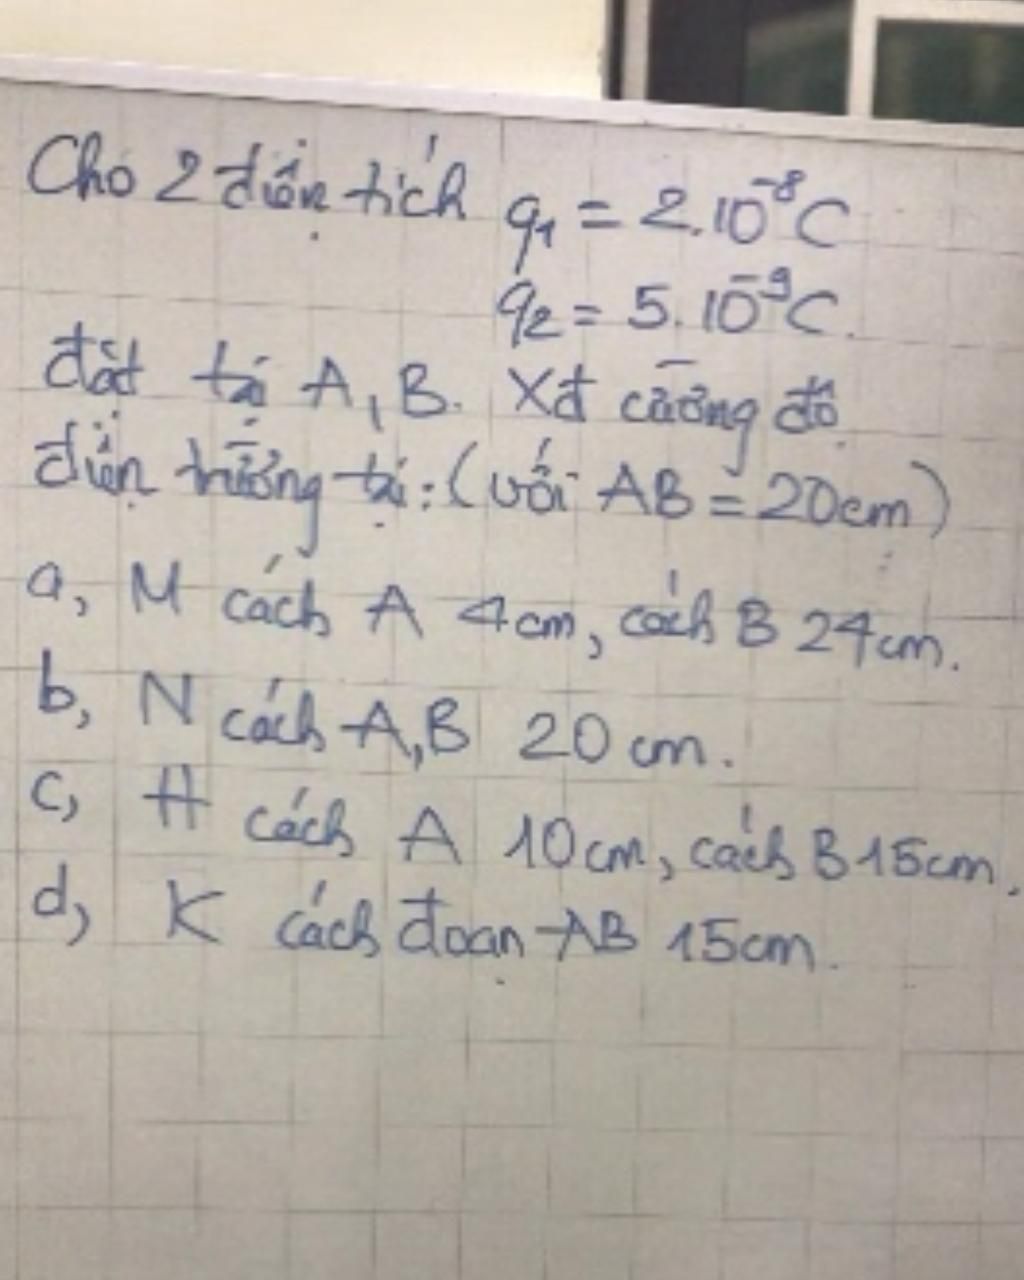 Cho 2 điện tích q₁ = 2.10⁻⁸C
q₂ = 5.10⁻⁹C.
đặt tại A, B. Xđ cường độ
điện trường tại: (với AB = 20cm)
a, M cách A 4cm, cách B 24cm.
b, N cách A,B 20 cm.
c, H cách A 10cm, cách B 15cm.
d, K cách đoạn AB 15cm.